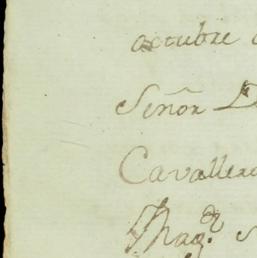 octubre
Señor D
Cavallero
Mag.d S